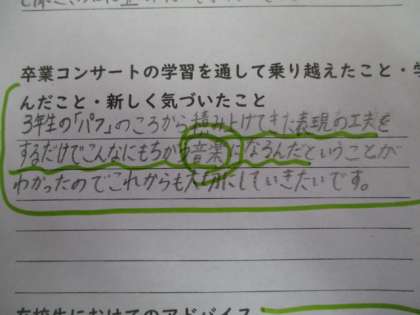 卒業コンサートの学習を通して乗り越えたこと・学
んだこと・新しく気づいたこと
3年生の「パフ」のころから積み上げてきた表現の工夫を
するだけでこんなにもちがう音楽になるんだということが
わかったのでこれからも大切にしていきたいです。
在校生におけてのアドバイス